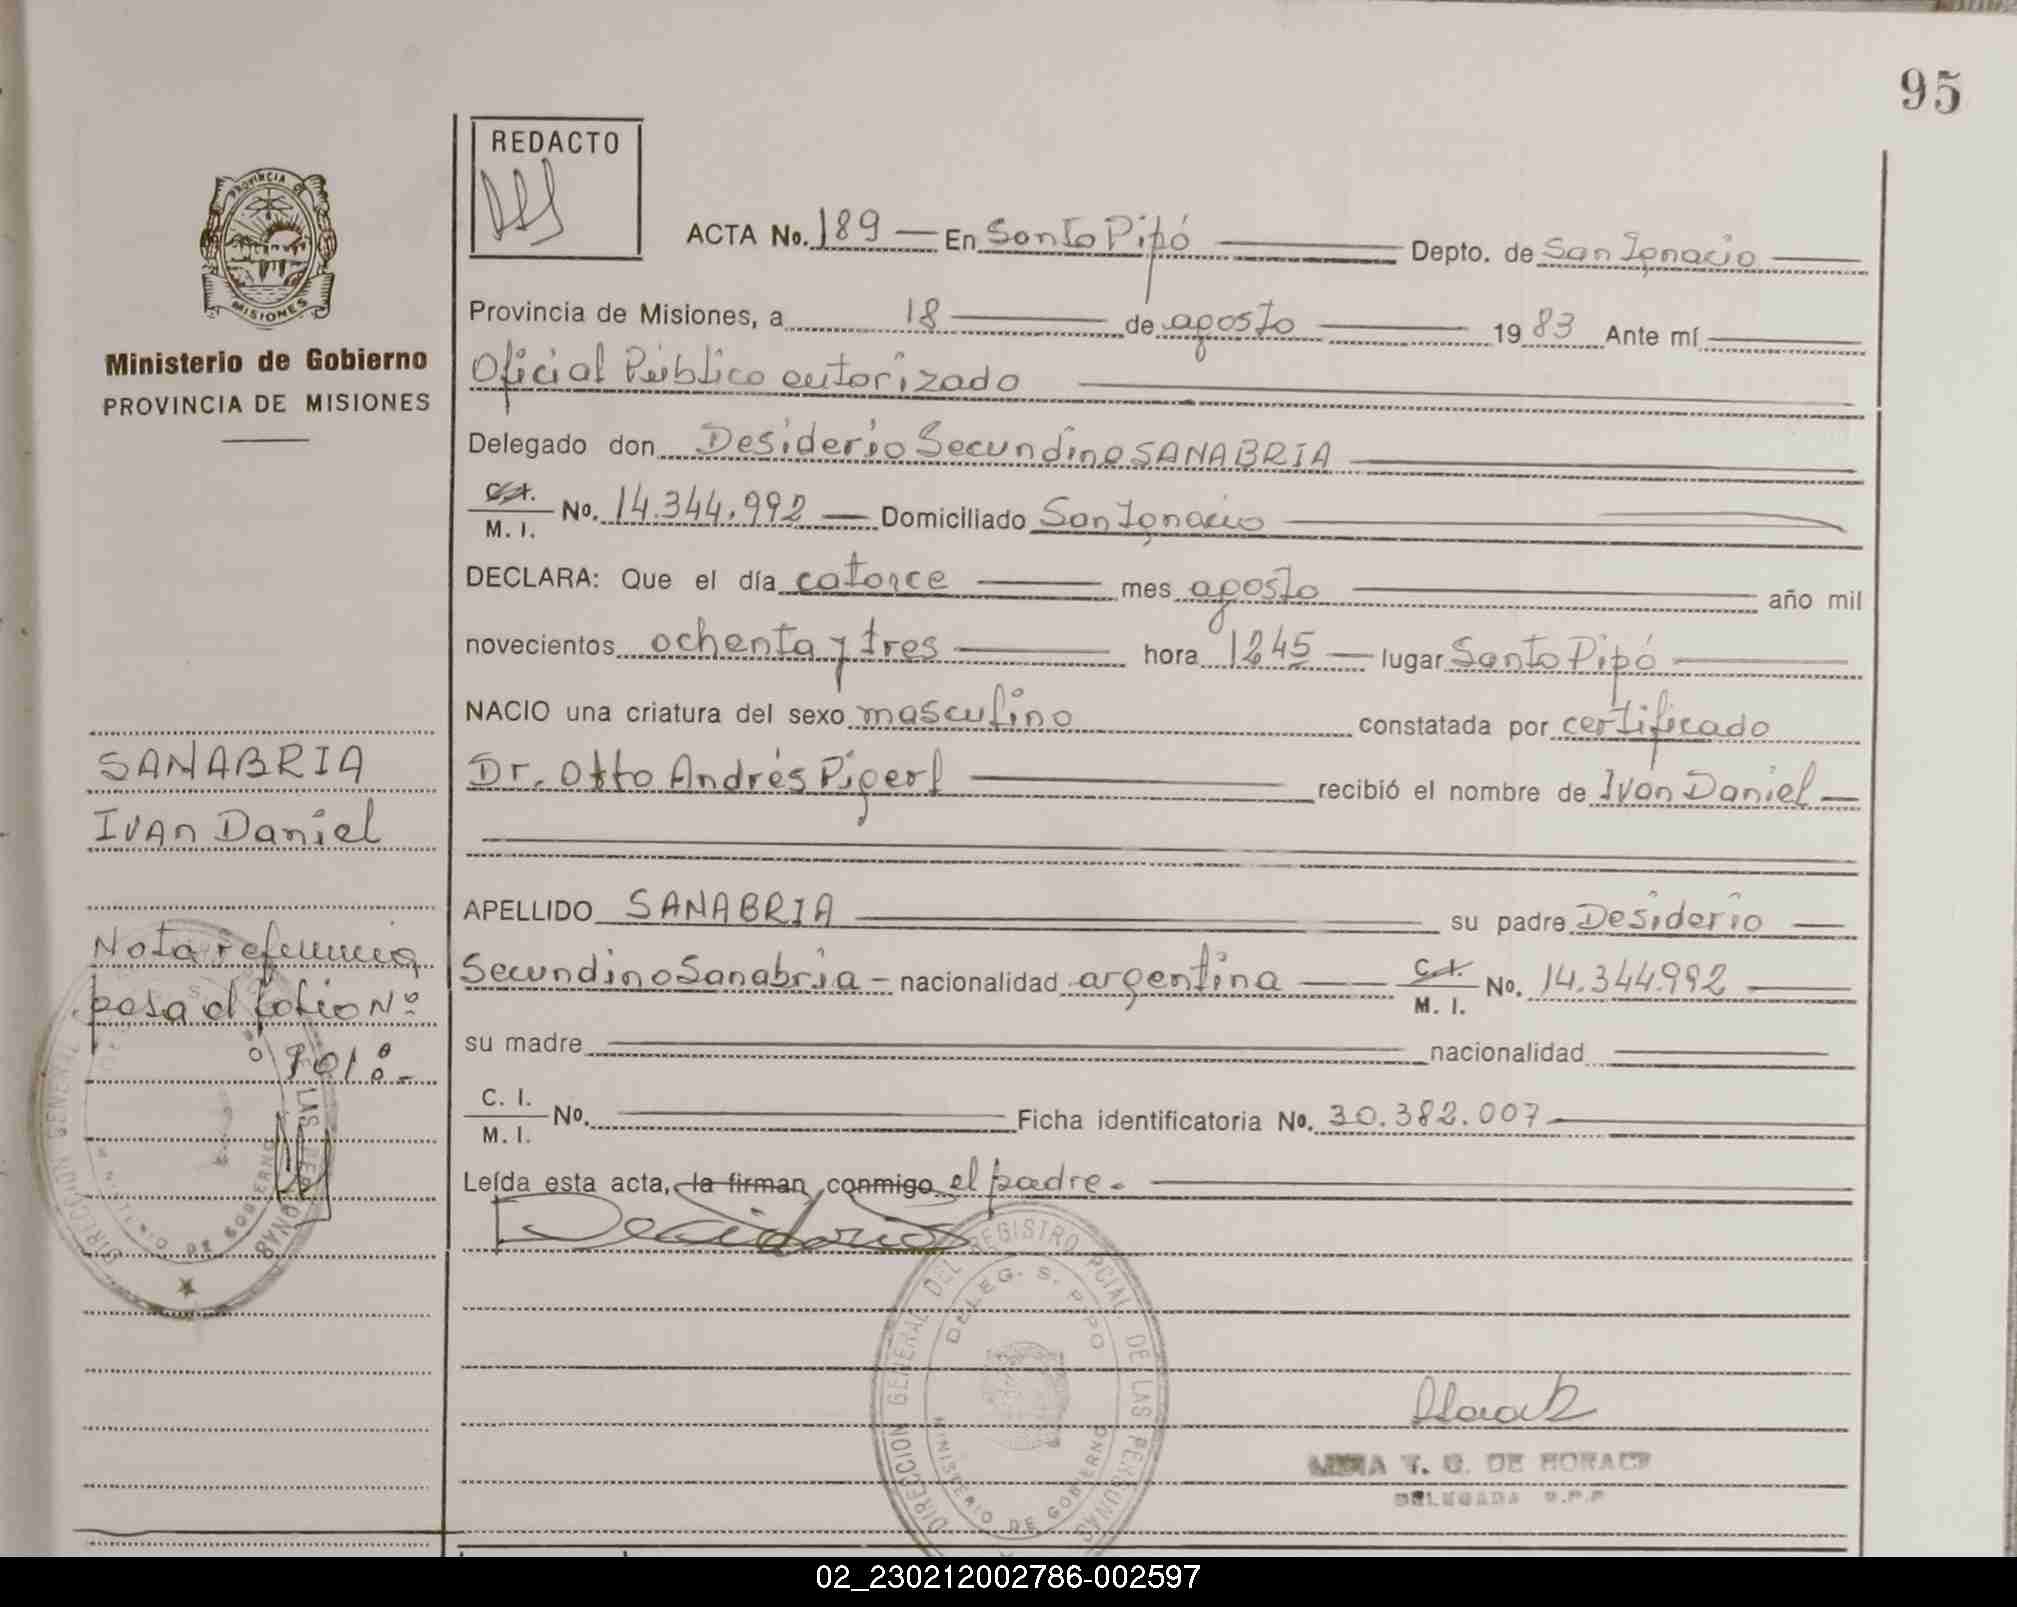 95
REDACTO
ACTA No. 189 — En Santo Pipó — Depto. de San Ignacio —
Provincia de Misiones, a 18 — de agosto — 19 83 Ante mí —
Oficial Público autorizado —
Delegado don Desiderio Secundino SANABRIA —
C.I. M. I. No. 14.344.992 — Domiciliado San Ignacio —
DECLARA: Que el día catorce — mes agosto — año mil
novecientos ochenta y tres — hora 1245 — lugar Santo Pipó —
NACIO una criatura del sexo masculino constatada por certificado
Dr. Otto Andrés Pigerl — recibió el nombre de Iván Daniel —
APELLIDO SANABRIA — su padre Desiderio —
Secundino Sanabria — nacionalidad argentina — C.I. M. I. No. 14.344.992 —
su madre — nacionalidad —
C. I. M. I. No. — Ficha identificatoria No. 30.382.007 —
Leída esta acta, la firman conmigo el padre. —
Desiderio S
DIRECCION GENERAL DEL REGISTRO PCIAL. DE LAS PERSONAS
DELEG. S. PIPO
MINISTERIO DE GOBIERNO
T. G. DE
DELEGADA
PROVINCIA DE
MISIONES
Ministerio de Gobierno
PROVINCIA DE MISIONES
SANABRIA
IVAN Daniel
Nota referencia
pasa al folio Nº
101
DIRECCION GENERAL LAS PERSONAS
DE GOBIERNO
02_230212002786-002597